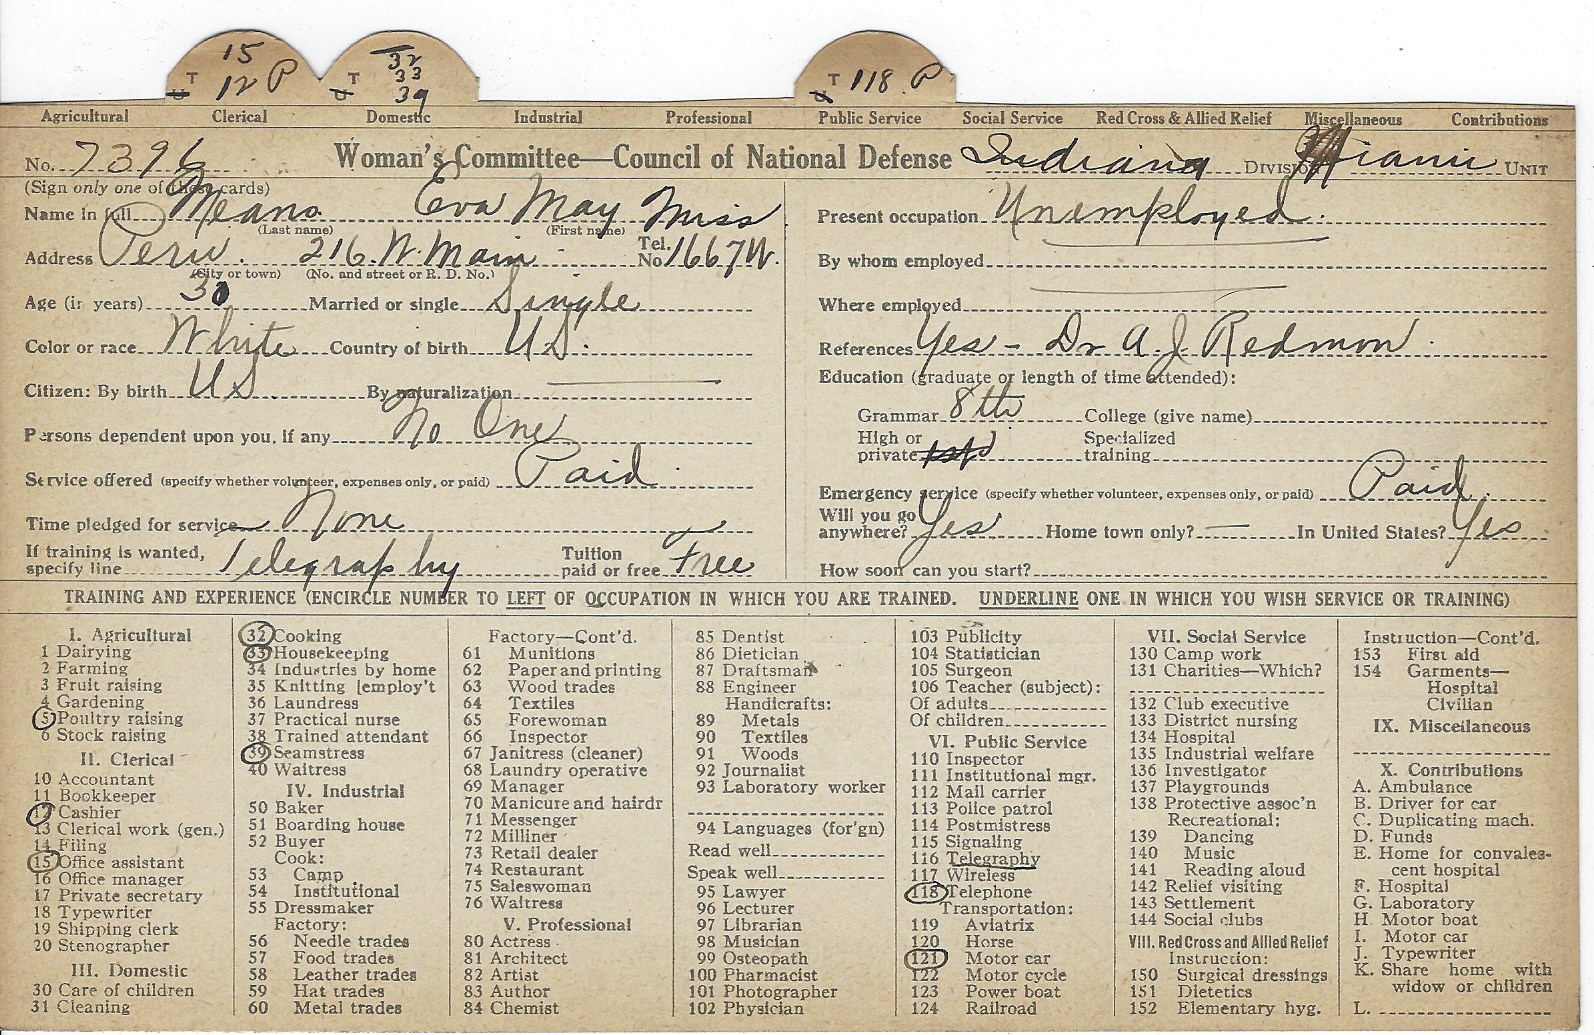 15
T 12 P
U
32
T 33
U 39
T 118 P
U
Agricultural Clerical Domestic Industrial Professional Public Service Social Service Red Cross & Allied Relief Miscellaneous Contributions
No. 7396 Woman's Committee—Council of National Defense Indiana DIVISION Miami UNIT
(Sign only one of these cards)
Name in full Means Eva May Miss
(Last name) (First name)
Address Peru 216 W. Main Tel. No. 1667W.
(City or town) (No. and street or R. D. No.)
Age (in years) 30 Married or single Single
Color or race White Country of birth US.
Citizen: By birth US By naturalization
Persons dependent upon you, if any No One
Service offered (specify whether volunteer, expenses only, or paid) Paid.
Time pledged for service None
If training is wanted, specify line Telegraphy Tuition paid or free Free
Present occupation Unemployed.
By whom employed
Where employed
References Yes - Dr A. J. Redmon.
Education (graduate or length of time attended):
Grammar 8th College (give name)
High or private 1st Specialized training
Emergency service (specify whether volunteer, expenses only, or paid) Paid.
Will you go anywhere? Yes Home town only? — In United States? Yes
How soon can you start?
TRAINING AND EXPERIENCE (ENCIRCLE NUMBER TO LEFT OF OCCUPATION IN WHICH YOU ARE TRAINED. UNDERLINE ONE IN WHICH YOU WISH SERVICE OR TRAINING)
I. Agricultural
1 Dairying
2 Farming
3 Fruit raising
4 Gardening
5 Poultry raising
6 Stock raising
II. Clerical
10 Accountant
11 Bookkeeper
12 Cashier
13 Clerical work (gen.)
14 Filing
15 Office assistant
16 Office manager
17 Private secretary
18 Typewriter
19 Shipping clerk
20 Stenographer
III. Domestic
30 Care of children
31 Cleaning
32 Cooking
33 Housekeeping
34 Industries by home
35 Knitting [employ't
36 Laundress
37 Practical nurse
38 Trained attendant
39 Seamstress
40 Waitress
IV. Industrial
50 Baker
51 Boarding house
52 Buyer
Cook:
53 Camp
54 Institutional
55 Dressmaker
Factory:
56 Needle trades
57 Food trades
58 Leather trades
59 Hat trades
60 Metal trades
Factory—Cont'd.
61 Munitions
62 Paper and printing
63 Wood trades
64 Textiles
65 Forewoman
66 Inspector
67 Janitress (cleaner)
68 Laundry operative
69 Manager
70 Manicure and hairdr
71 Messenger
72 Milliner
73 Retail dealer
74 Restaurant
75 Saleswoman
76 Waitress
V. Professional
80 Actress
81 Architect
82 Artist
83 Author
84 Chemist
85 Dentist
86 Dietician
87 Draftsman
88 Engineer
Handicrafts:
89 Metals
90 Textiles
91 Woods
92 Journalist
93 Laboratory worker
94 Languages (for'gn)
Read well
Speak well
95 Lawyer
96 Lecturer
97 Librarian
98 Musician
99 Osteopath
100 Pharmacist
101 Photographer
102 Physician
103 Publicity
104 Statistician
105 Surgeon
106 Teacher (subject):
Of adults
Of children
VI. Public Service
110 Inspector
111 Institutional mgr.
112 Mail carrier
113 Police patrol
114 Postmistress
115 Signaling
116 Telegraphy
117 Wireless
118 Telephone
Transportation:
119 Aviatrix
120 Horse
121 Motor car
122 Motor cycle
123 Power boat
124 Railroad
VII. Social Service
130 Camp work
131 Charities—Which?
132 Club executive
133 District nursing
134 Hospital
135 Industrial welfare
136 Investigator
137 Playgrounds
138 Protective assoc'n
Recreational:
139 Dancing
140 Music
141 Reading aloud
142 Relief visiting
143 Settlement
144 Social clubs
VIII. Red Cross and Allied Relief
Instruction:
150 Surgical dressings
151 Dietetics
152 Elementary hyg.
Instruction—Cont'd.
153 First aid
154 Garments—
Hospital
Civilian
IX. Miscellaneous
X. Contributions
A. Ambulance
B. Driver for car
C. Duplicating mach.
D. Funds
E. Home for convales-
cent hospital
F. Hospital
G. Laboratory
H. Motor boat
I. Motor car
J. Typewriter
K. Share home with
widow or children
L.